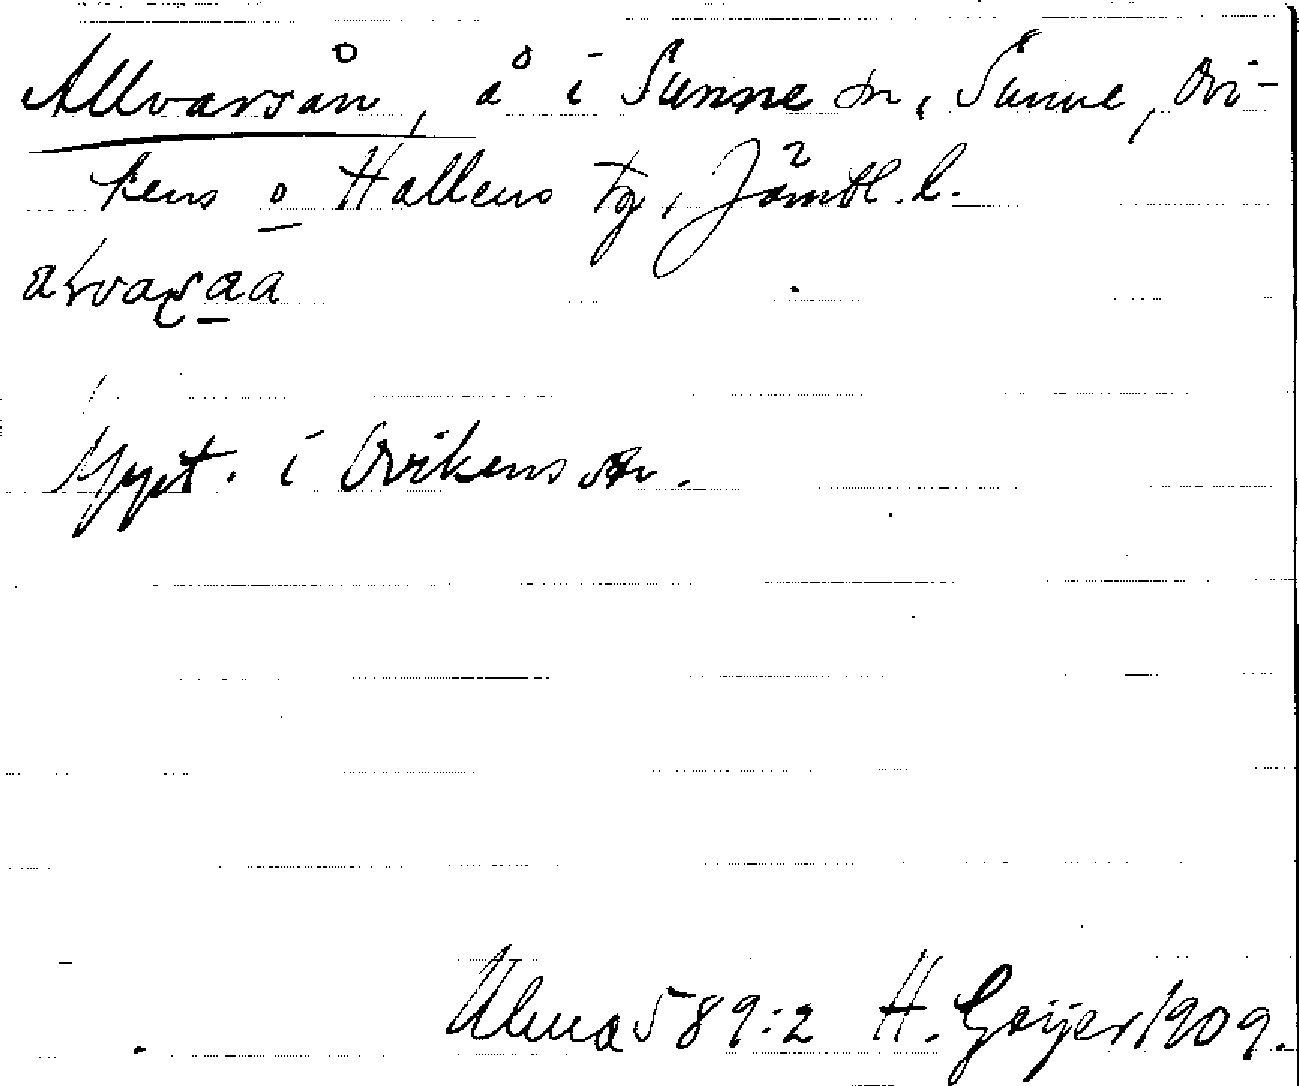 Allvarsån, å i Sunne sn, Sunne, Ovi-
kens o Hallens tg, Jämtl. l.
Uppt. i Ovikens sn.
Ulma 589:2 H. Geijer 1909.